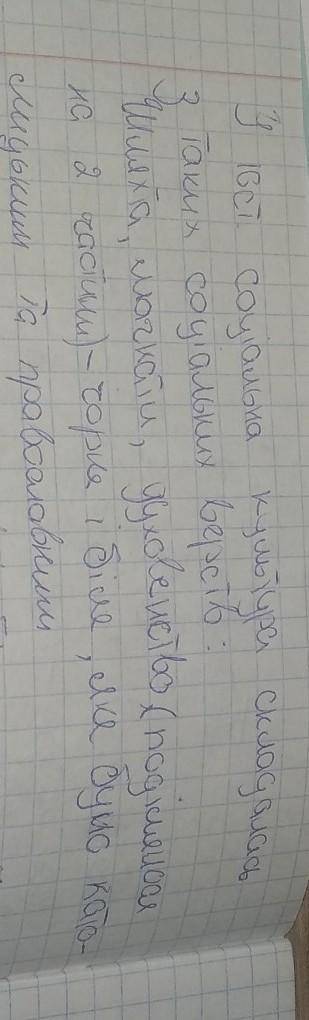 У 16ст. соціальна культура складалась
З таких соціальних верств:
Шляхта, магнати, духовенство (поділялися
на 2 частини) - чорне і біле, яке було като-
лицьким та православним